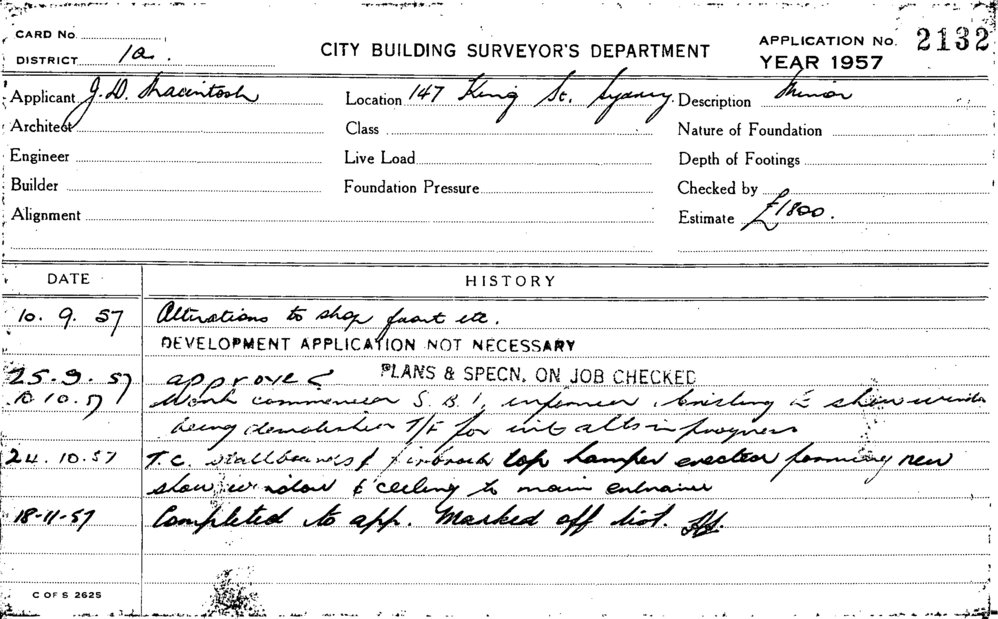 CARD No.
DISTRICT 1a.
CITY BUILDING SURVEYOR'S DEPARTMENT
APPLICATION No. 2132
YEAR 1957
Applicant J. D. Macintosh
Location 147 King St. Sydney.
Description Minor
Architect
Class
Nature of Foundation
Engineer
Live Load
Depth of Footings
Builder
Foundation Pressure
Checked by
Alignment
Estimate £1800.
DATE HISTORY
10. 9. 57 Alterations to shop front etc.
DEVELOPMENT APPLICATION NOT NECESSARY
25. 9. 57 approved PLANS & SPECN. ON JOB CHECKED
10.10.57 Work commenced S. B. I. informed existing show window
being demolished T/F for alts in progress
24.10.57 T.C. stallboards & top hamper erected forming new
show window & ceiling to main entrance
18-11-57 Completed to app. Marked off list.
C OF S 2625